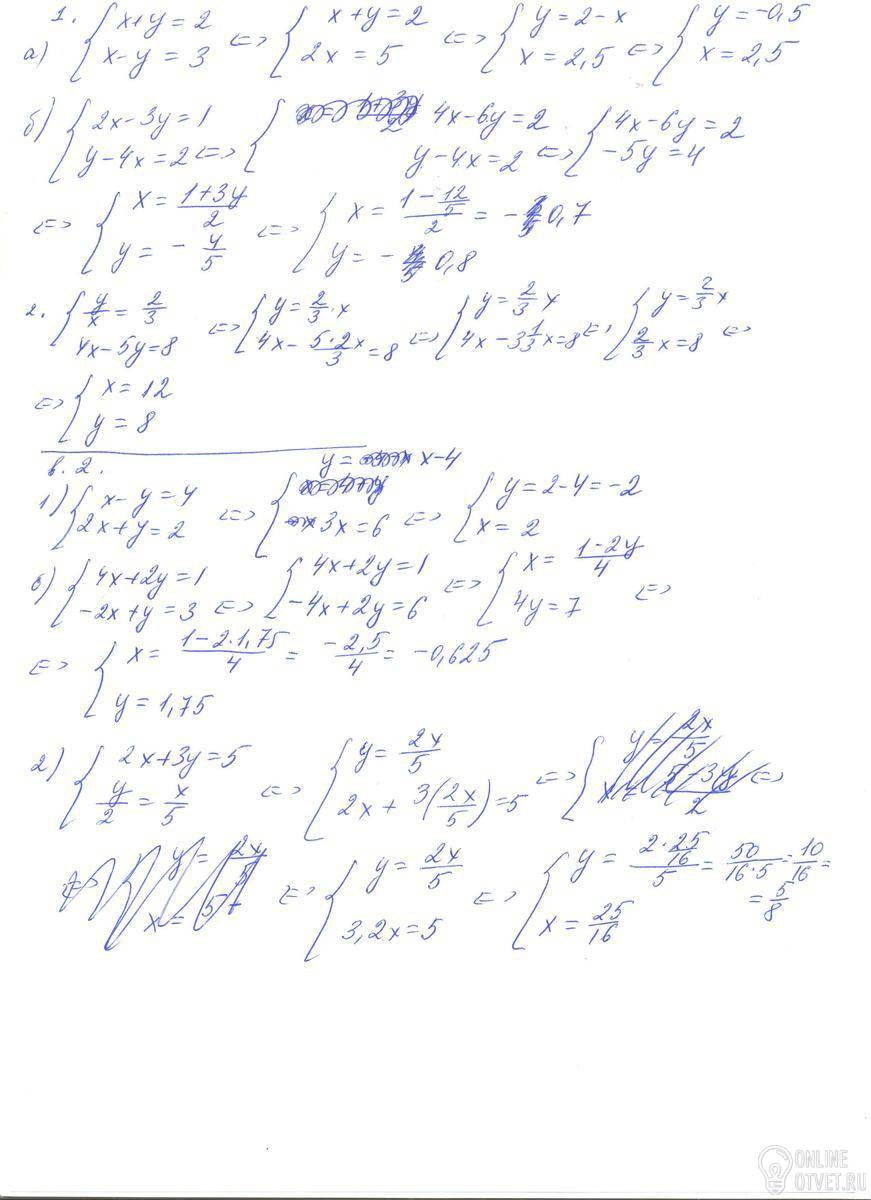 1.
а) { x+y=2 ; x-y=3 <=> { x+y=2 ; 2x=5 <=> { y=2-x ; x=2,5 <=> { y=-0,5 ; x=2,5
б) { 2x-3y=1 ; y-4x=2 <=> { 4x-6y=2 ; y-4x=2 <=> { 4x-6y=2 ; -5y=4
<=> { x=(1+3y)/2 ; y=-4/5 <=> { x=(1-12/5)/2=-0,7 ; y=-0,8
2. { y/x=2/3 ; 4x-5y=8 <=> { y=2/3·x ; 4x-(5·2x)/3=8 <=> { y=2/3 x ; 4x-3 1/3 x=8 <=> { y=2/3 x ; 2/3 x=8 <=>
<=> { x=12 ; y=8
в. 2.
1) { x-y=4 ; 2x+y=2 <=> { y=x-4 ; 3x=6 <=> { y=2-4=-2 ; x=2
б) { 4x+2y=1 ; -2x+y=3 <=> { 4x+2y=1 ; -4x+2y=6 <=> { x=(1-2y)/4 ; 4y=7 <=>
<=> { x=(1-2·1,75)/4=-2,5/4=-0,625 ; y=1,75
2) { 2x+3y=5 ; y/2=x/5 <=> { y=2x/5 ; 2x+3(2x/5)=5 <=> { y=2x/5 ; x=(5-3y)/2 <=>
<=> { y=2x/5 ; 3,2x=5 <=> { y=(2·25/16)/5=50/(16·5)=10/16=5/8 ; x=25/16
ONLINE
OTVET.RU